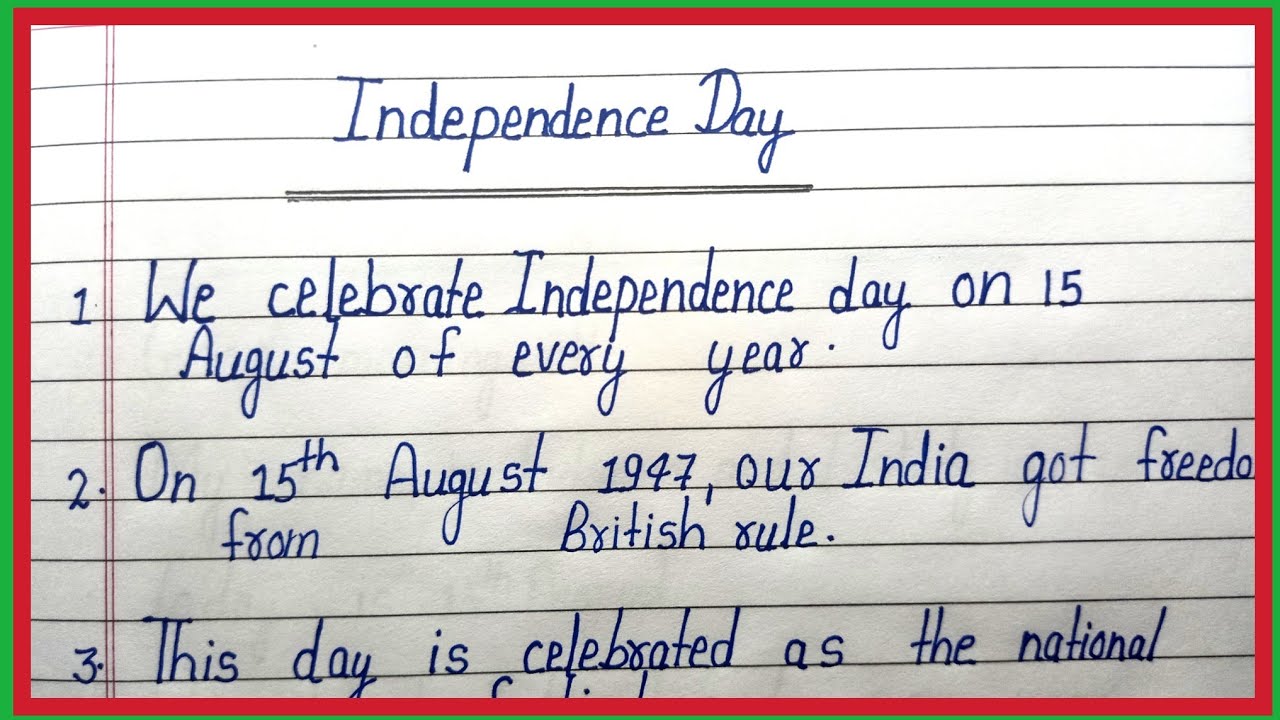 Independence Day
1. We celebrate Independence day on 15
August of every year.
2. On 15th August 1947, our India got freedo
from British rule.
3. This day is celebrated as the national